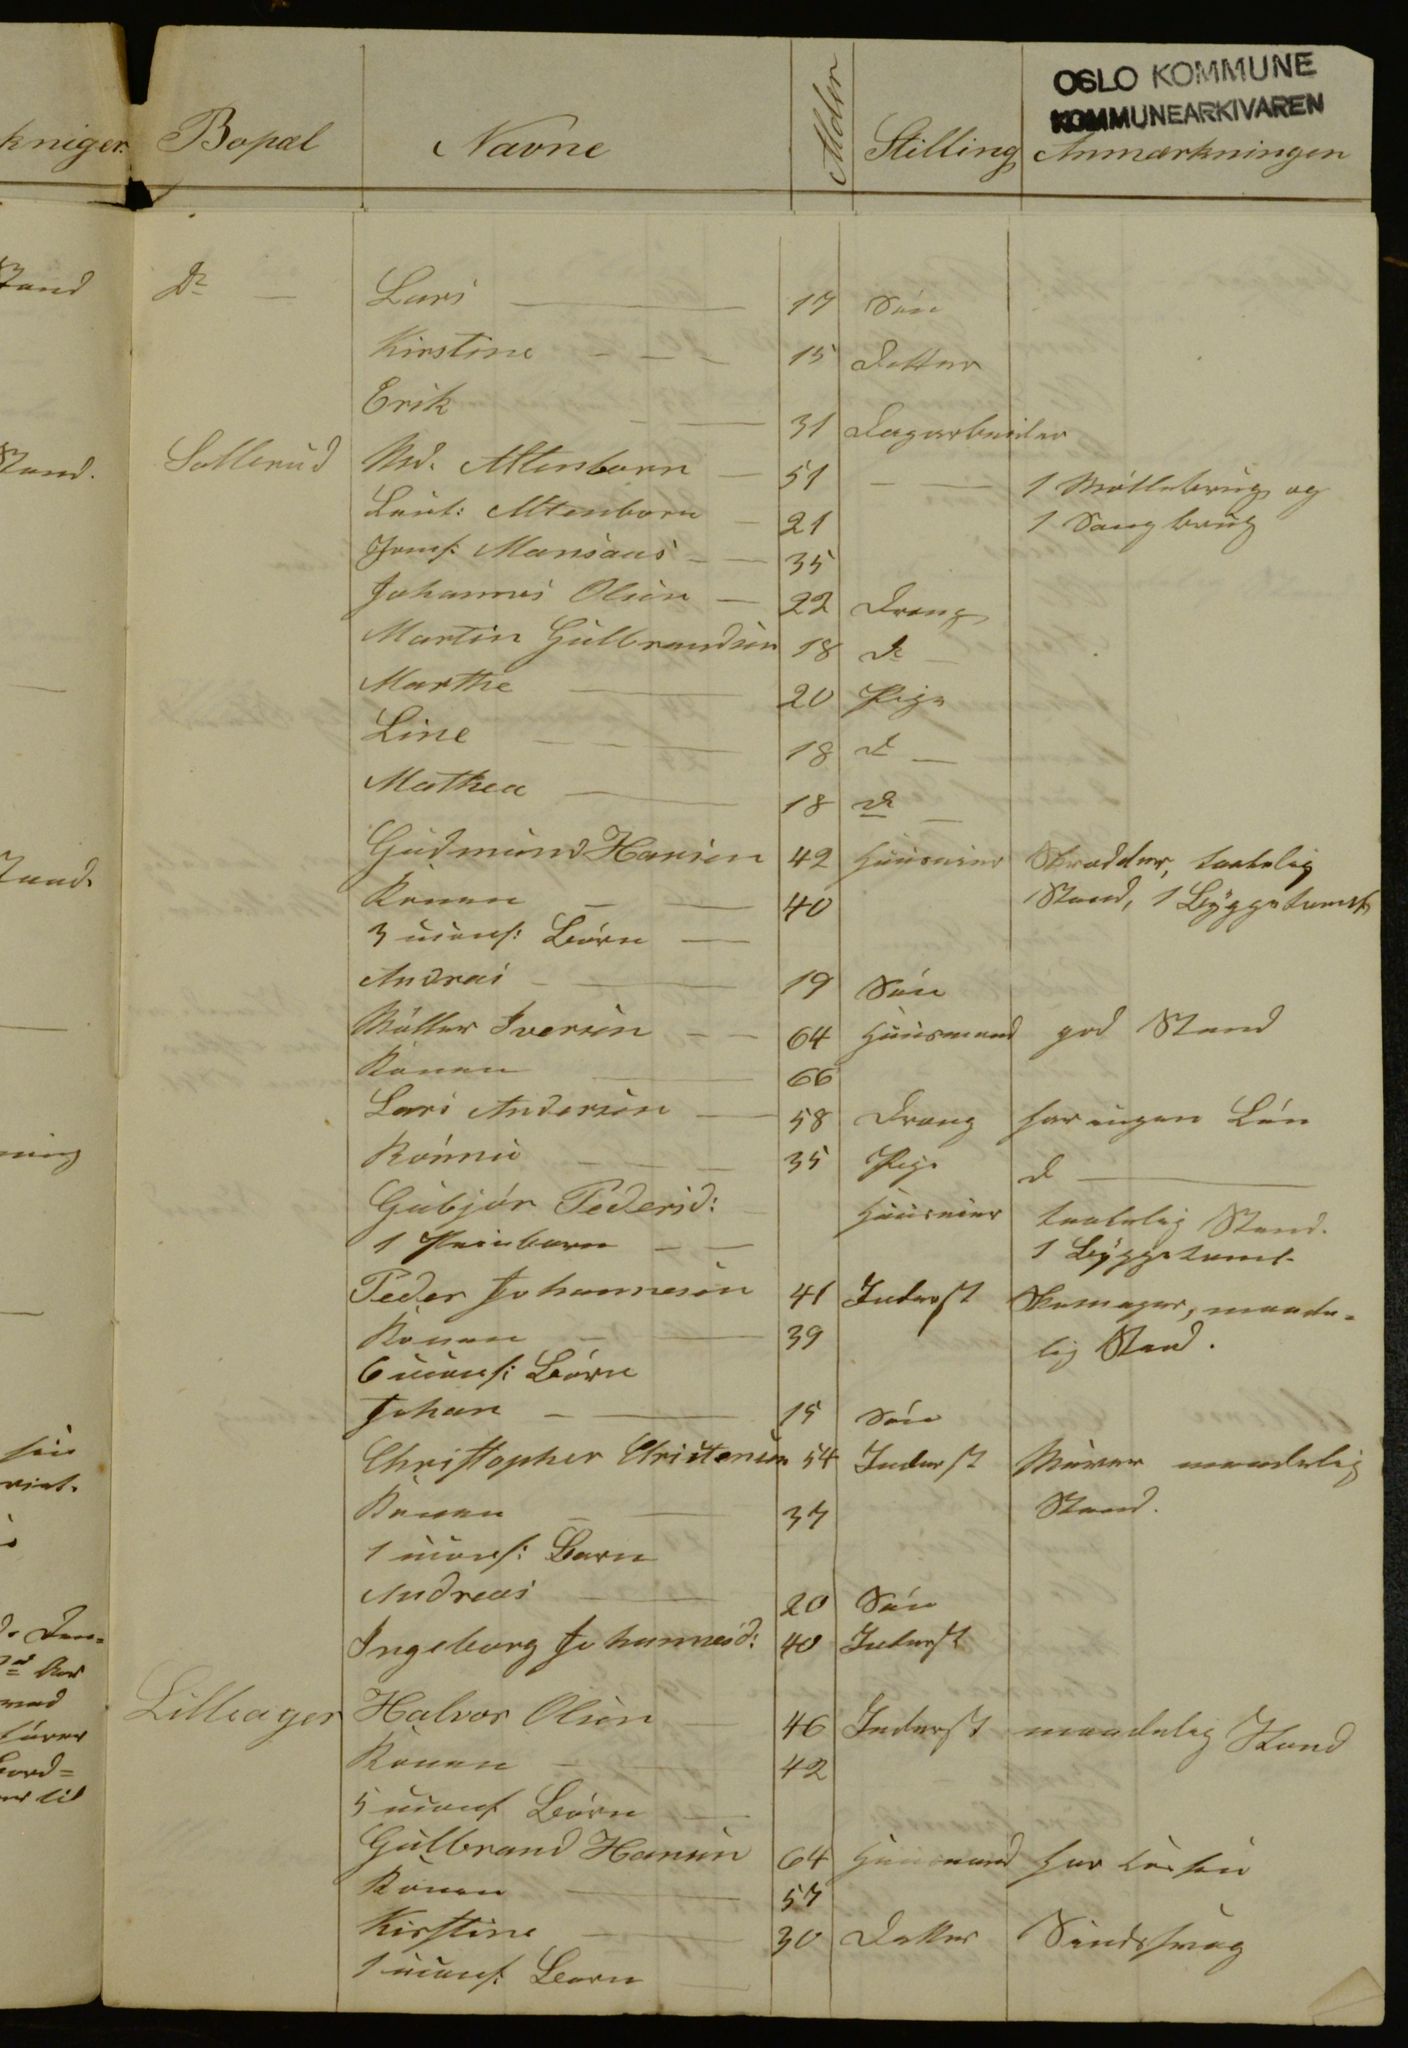 OSLO KOMMUNE
KOMMUNEARKIVAREN
Bopæl Navne Alder Stilling Anmærkningen
Do Lars 17 Søn
Kirstine 15 Datter
Erik 31 Dagarbeider
Sollerud Md. Altenborn 51 1 Møllebrug og
Leut: Altenborn 21 1 Saugbrug
Jomf: 35
Johannes Olsen 22 Dreng
Martin Gulbrandsen 18 do
Marthe 20 Pige
Line 18 do
Mathea 18 do
Gudmund Hansen 42 Huuseier Skrædder, taalelig
Konen 40 Stand, 1 Byggetomt
3 uconf: Børn
Andreas 19 Søn
Møller Iversen 64 Huusmand god Stand
Konen 66
Lars Andersen 58 Dreng har ingen Løn
Rønnie 35 Pige do
Gubjør Pedersd: Huuseier taalelig Stand.
1 Pleiebarn 1 Byggetomt
Peder Johannesen 41 Inderst Skomager, maade-
Konen 39 lig Stand.
6 uconf: Børn
Johan 15 Søn
Christopher Christensen 54 Inderst Murer maadelig
Konen 37 Stand.
1 uconf: Barn
Andreas 20 Søn
Ingeborg Johannesd: 40 Inderst
Lilleager Halvor Olsen 46 Inderst maadelig Stand
Konen 42
5 uconf Børn
Gulbrand Hansen 64 Huusmand har
Konen 57
Kirstine 30 Datter Sindssvag
1 uconf: Barn